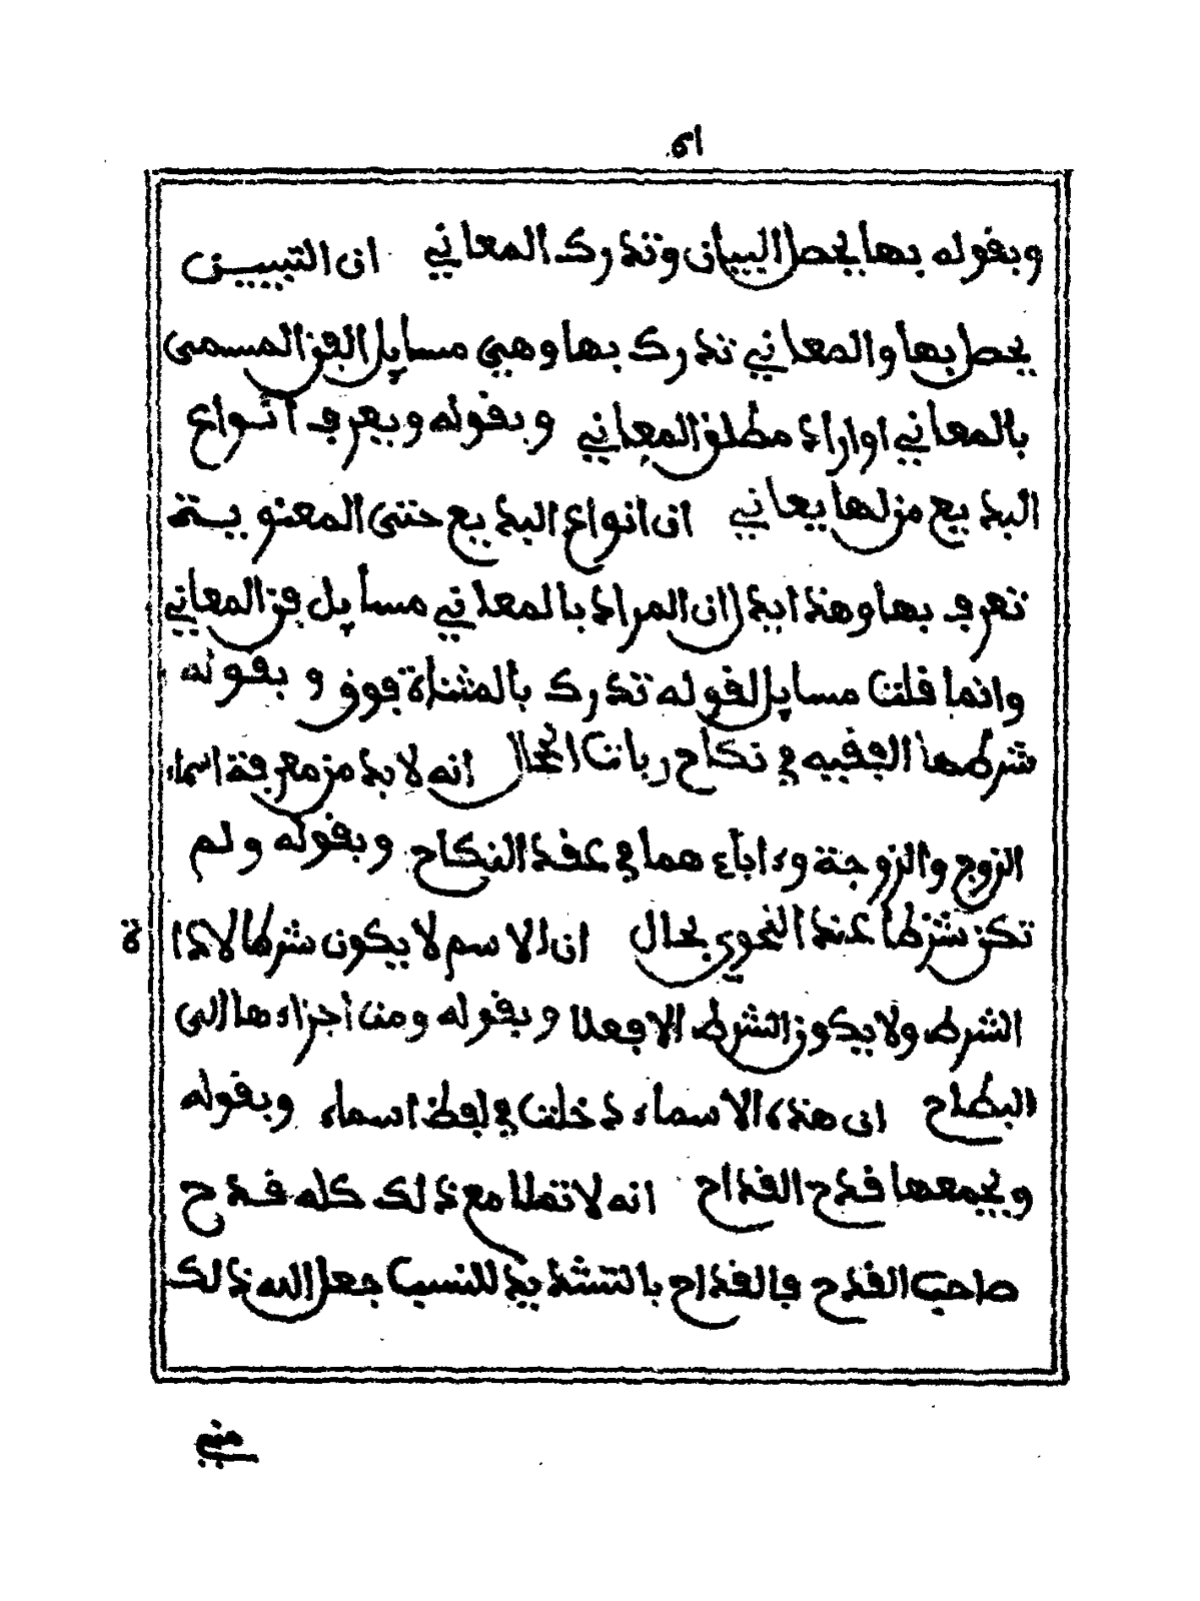 وبقوله بها يحصل البيان وتدرك المعاني ان التبيين
يحصل بها والمعاني تدرك بها وهي مسايل الفن المسمى
بالمعاني او اراد مطلق المعاني وبقوله ويعرف انواع
البديع من لها يعاني ان انواع البديع حتى المعنوية
تعرف بها وهذا ايذان المراد بالمعاني مسايل فن المعاني
وانما قلت مسايل لقوله تدرك بالمثناة فوق وبقوله
شرطها الفقيه في نكاح ربات الحجال انه لا بد من معرفة اسماء
الزوج والزوجة وءاباءهما في عقد النكاح وبقوله ولم
تكن شرطا عند النحوي بحال ان الاسم لا يكون شرطا لاداة
الشرط ولا يكون الشرط الا فعلا وبقوله ومن اجزاءها الى
البطاح ان هذه الاسماء دخلت في لفظ اسماء وبقوله
ويجمعها قدح القداح انه لا تملا مع ذلك كله قدح
صاحب القدح فالقداح بالتشديد للنسب جعل الله ذلك
مني